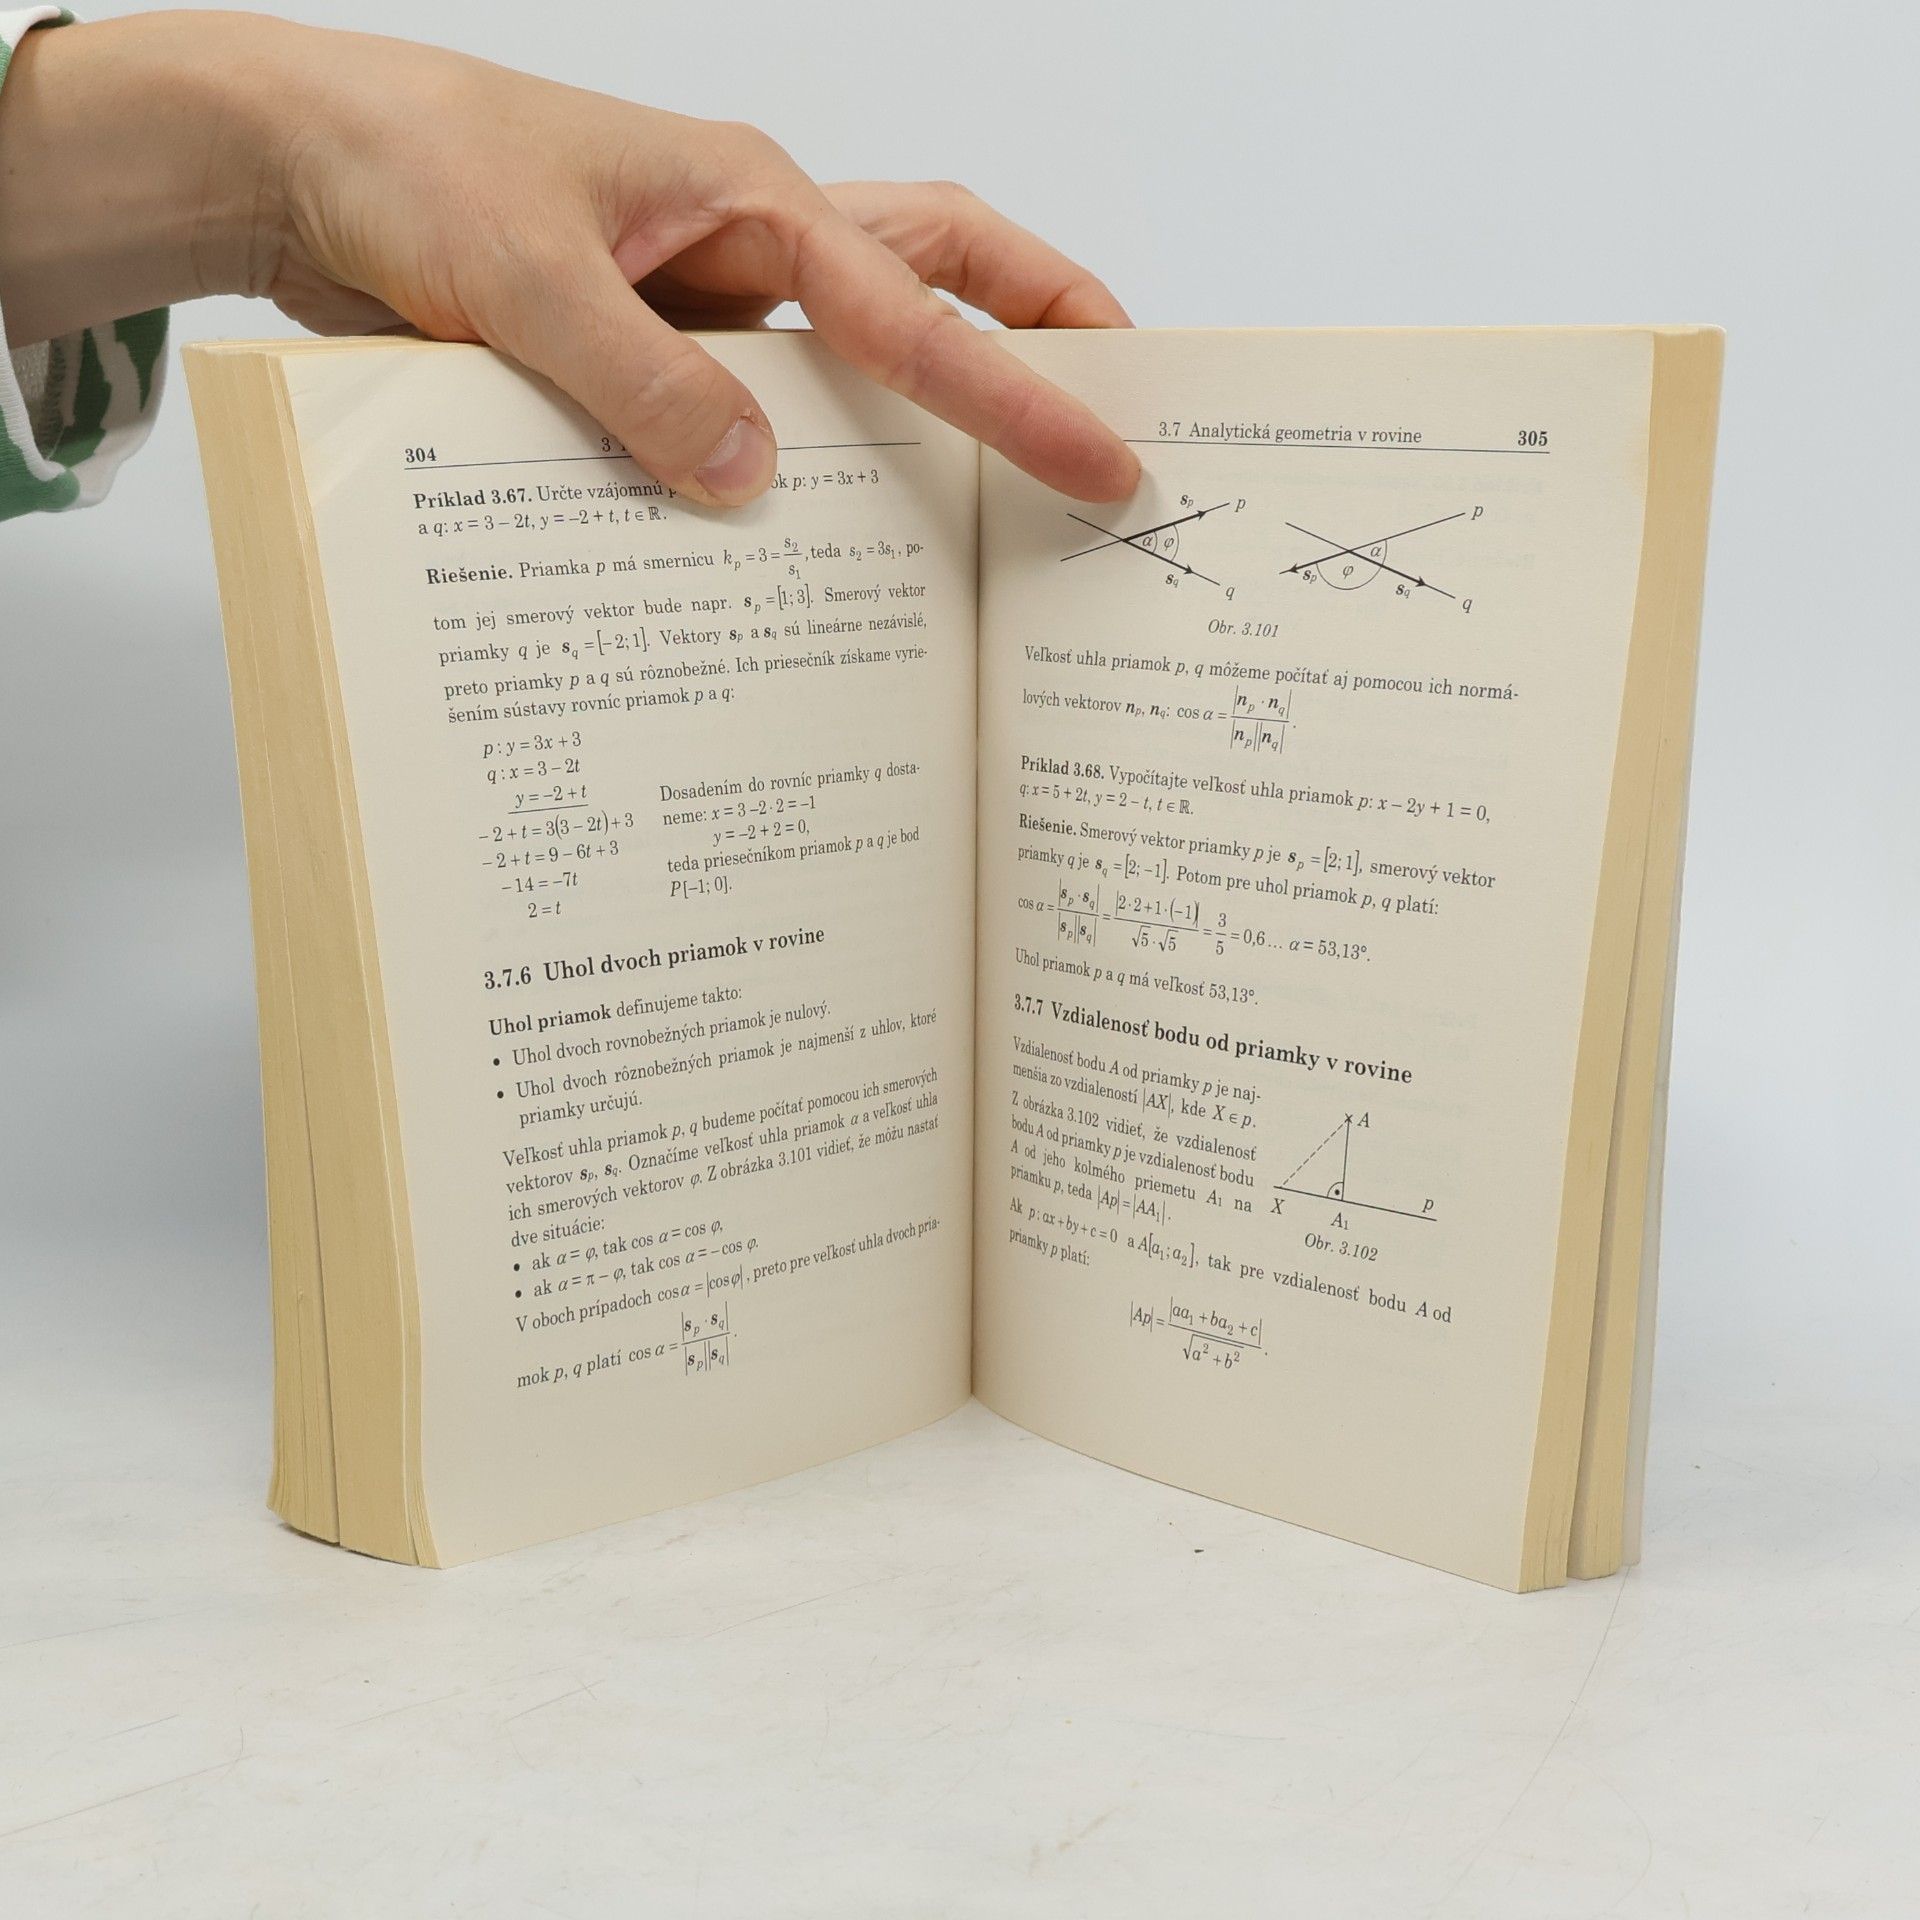 304
3
Príklad 3.67. Určte vzájomnú p: y = 3x + 3
a q: x = 3 – 2t, y = –2 + t, t ∈ ℝ.
Riešenie. Priamka p má smernicu kₚ = 3 = s₂/s₁, teda s₂ = 3s₁, po-
tom jej smerový vektor bude napr. sₚ = [1; 3]. Smerový vektor
priamky q je s_q = [–2; 1]. Vektory sₚ a s_q sú lineárne nezávislé,
preto priamky p a q sú rôznobežné. Ich priesečník získame vyrie-
šením sústavy rovníc priamok p a q:
p : y = 3x + 3
q : x = 3 – 2t
y = –2 + t
–2 + t = 3(3 – 2t) + 3
–2 + t = 9 – 6t + 3
–14 = –7t
2 = t
Dosadením do rovníc priamky q dosta-
neme: x = 3 –2 · 2 = –1
y = –2 + 2 = 0,
teda priesečníkom priamok p a q je bod
P[–1; 0].
3.7.6 Uhol dvoch priamok v rovine
Uhol priamok definujeme takto:
• Uhol dvoch rovnobežných priamok je nulový.
• Uhol dvoch rôznobežných priamok je najmenší z uhlov, ktoré
priamky určujú.
Veľkosť uhla priamok p, q budeme počítať pomocou ich smerových
vektorov sₚ, s_q. Označíme veľkosť uhla priamok α a veľkosť uhla
ich smerových vektorov φ. Z obrázka 3.101 vidieť, že môžu nastať
dve situácie:
• ak α = φ, tak cos α = cos φ,
• ak α = π – φ, tak cos α = – cos φ.
V oboch prípadoch cos α = |cos φ|, preto pre veľkosť uhla dvoch pria-
mok p, q platí cos α = |sₚ · s_q| / |sₚ||s_q|.
3.7 Analytická geometria v rovine 305
sₚ p α φ s_q q
p α sₚ φ s_q q
Obr. 3.101
Veľkosť uhla priamok p, q môžeme počítať aj pomocou ich normá-
lových vektorov nₚ, n_q: cos α = |nₚ · n_q| / |nₚ||n_q|.
Príklad 3.68. Vypočítajte veľkosť uhla priamok p: x – 2y + 1 = 0,
q: x = 5 + 2t, y = 2 – t, t ∈ ℝ.
Riešenie. Smerový vektor priamky p je sₚ = [2; 1], smerový vektor
priamky q je s_q = [2; –1]. Potom pre uhol priamok p, q platí:
cos α = |sₚ · s_q| / |sₚ||s_q| = |2 · 2 + 1 · (–1)| / √5 · √5 = 3/5 = 0,6 … α = 53,13°.
Uhol priamok p a q má veľkosť 53,13°.
3.7.7 Vzdialenosť bodu od priamky v rovine
Vzdialenosť bodu A od priamky p je naj-
menšia zo vzdialeností |AX|, kde X ∈ p.
Z obrázka 3.102 vidieť, že vzdialenosť
bodu A od priamky p je vzdialenosť bodu
A od jeho kolmého priemetu A₁ na
priamku p, teda |Ap| = |AA₁|.
A
X A₁ p
Obr. 3.102
Ak p: ax + by + c = 0 a A[a₁; a₂], tak pre vzdialenosť bodu A od
priamky p platí:
|Ap| = |aa₁ + ba₂ + c| / √a² + b².